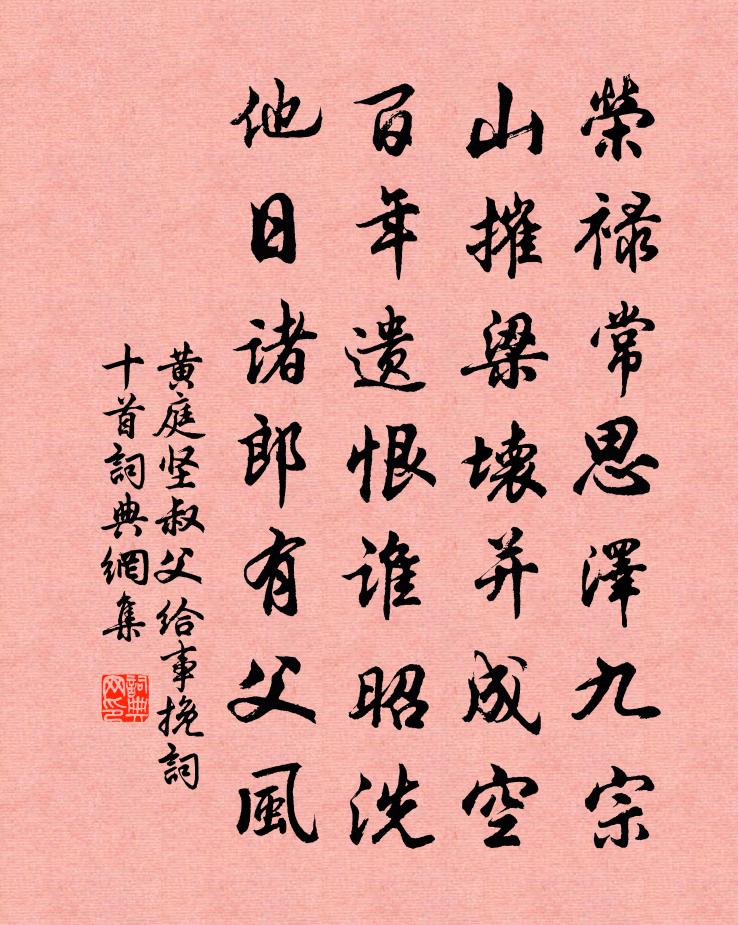 榮祿常思澤九宗
山摧梁壞并成空
百年遺恨誰昭洗
他日諸郎有父風
黄庭坚叔父给事挽詞
十首詞典網集
詞典
网印